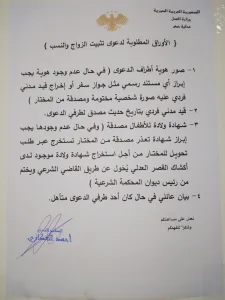 الجمهورية العربية السورية
وزارة العدل
( الأوراق المطلوبة لدعوى تثبيت الزواج والنسب )
١- صور هوية أطراف الدعوى ( في حال عدم وجود هوية يجب
إبراز أي مستند رسمي مثل جواز سفر أو إخراج قيد مدني
فردي عليه صورة شخصية مختومة ومصدقة من المختار )
٢- قيد مدني فردي بتاريخ حديث مصدق لطرفي الدعوى.
٣- شهادة ولادة للأطفال مصدقة ( وفي حال عدم وجودها يجب
إبراز شهادة تعذر مصدقة من المختار نستخرج عبر طلب
تحويل للمختار من أجل استخراج شهادة ولادة موجود لدى
أكشاك القصر العدلي يُحول عن طريق القاضي الشرعي ويختم
من رئيس ديوان المحكمة الشرعية )
٤- بيان عائلي في حال كان أحد طرفي الدعوى متأهل.
نعمل على مساعدتكم